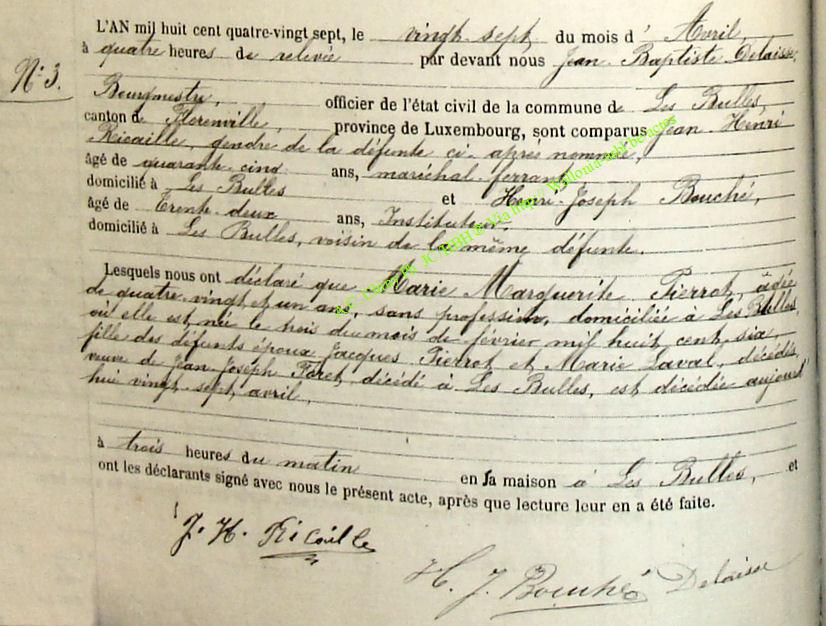 L'AN mil huit cent quatre-vingt sept, le vingt-sept du mois d' Avril,
à quatre heures de relevée par devant nous Jean Baptiste Delaisse,
N° 3.
Bourgmestre, officier de l'état civil de la commune de Les Bulles,
canton de Florenville, province de Luxembourg, sont comparus Jean-Henri
Ricaille, gendre de la défunte ci-après nommée,
âgé de quarante cinq ans, maréchal-ferrant
domicilié à Les Bulles et Henri-Joseph Bouché,
âgé de trente-deux ans, Instituteur,
domicilié à Les Bulles, voisin de la même défunte.
Lesquels nous ont déclaré que Marie Marguerite Pierrot, âgée
de quatre vingt et un ans, sans profession, domiciliée à Les Bulles,
où elle est né le trois du mois de février mil huit cent six
fille des défunts époux Jacques Pierrot et Marie Laval, décédés,
veuve de Jean Joseph Foret, décédé à Les Bulles, est décédée aujourd'
hui vingt-sept avril,
à trois heures du matin en sa maison à Les Bulles, et
ont les déclarants signé avec nous le présent acte, après que lecture leur en a été faite.
J. H. Ricaille
H. J. Bouché Delaisse